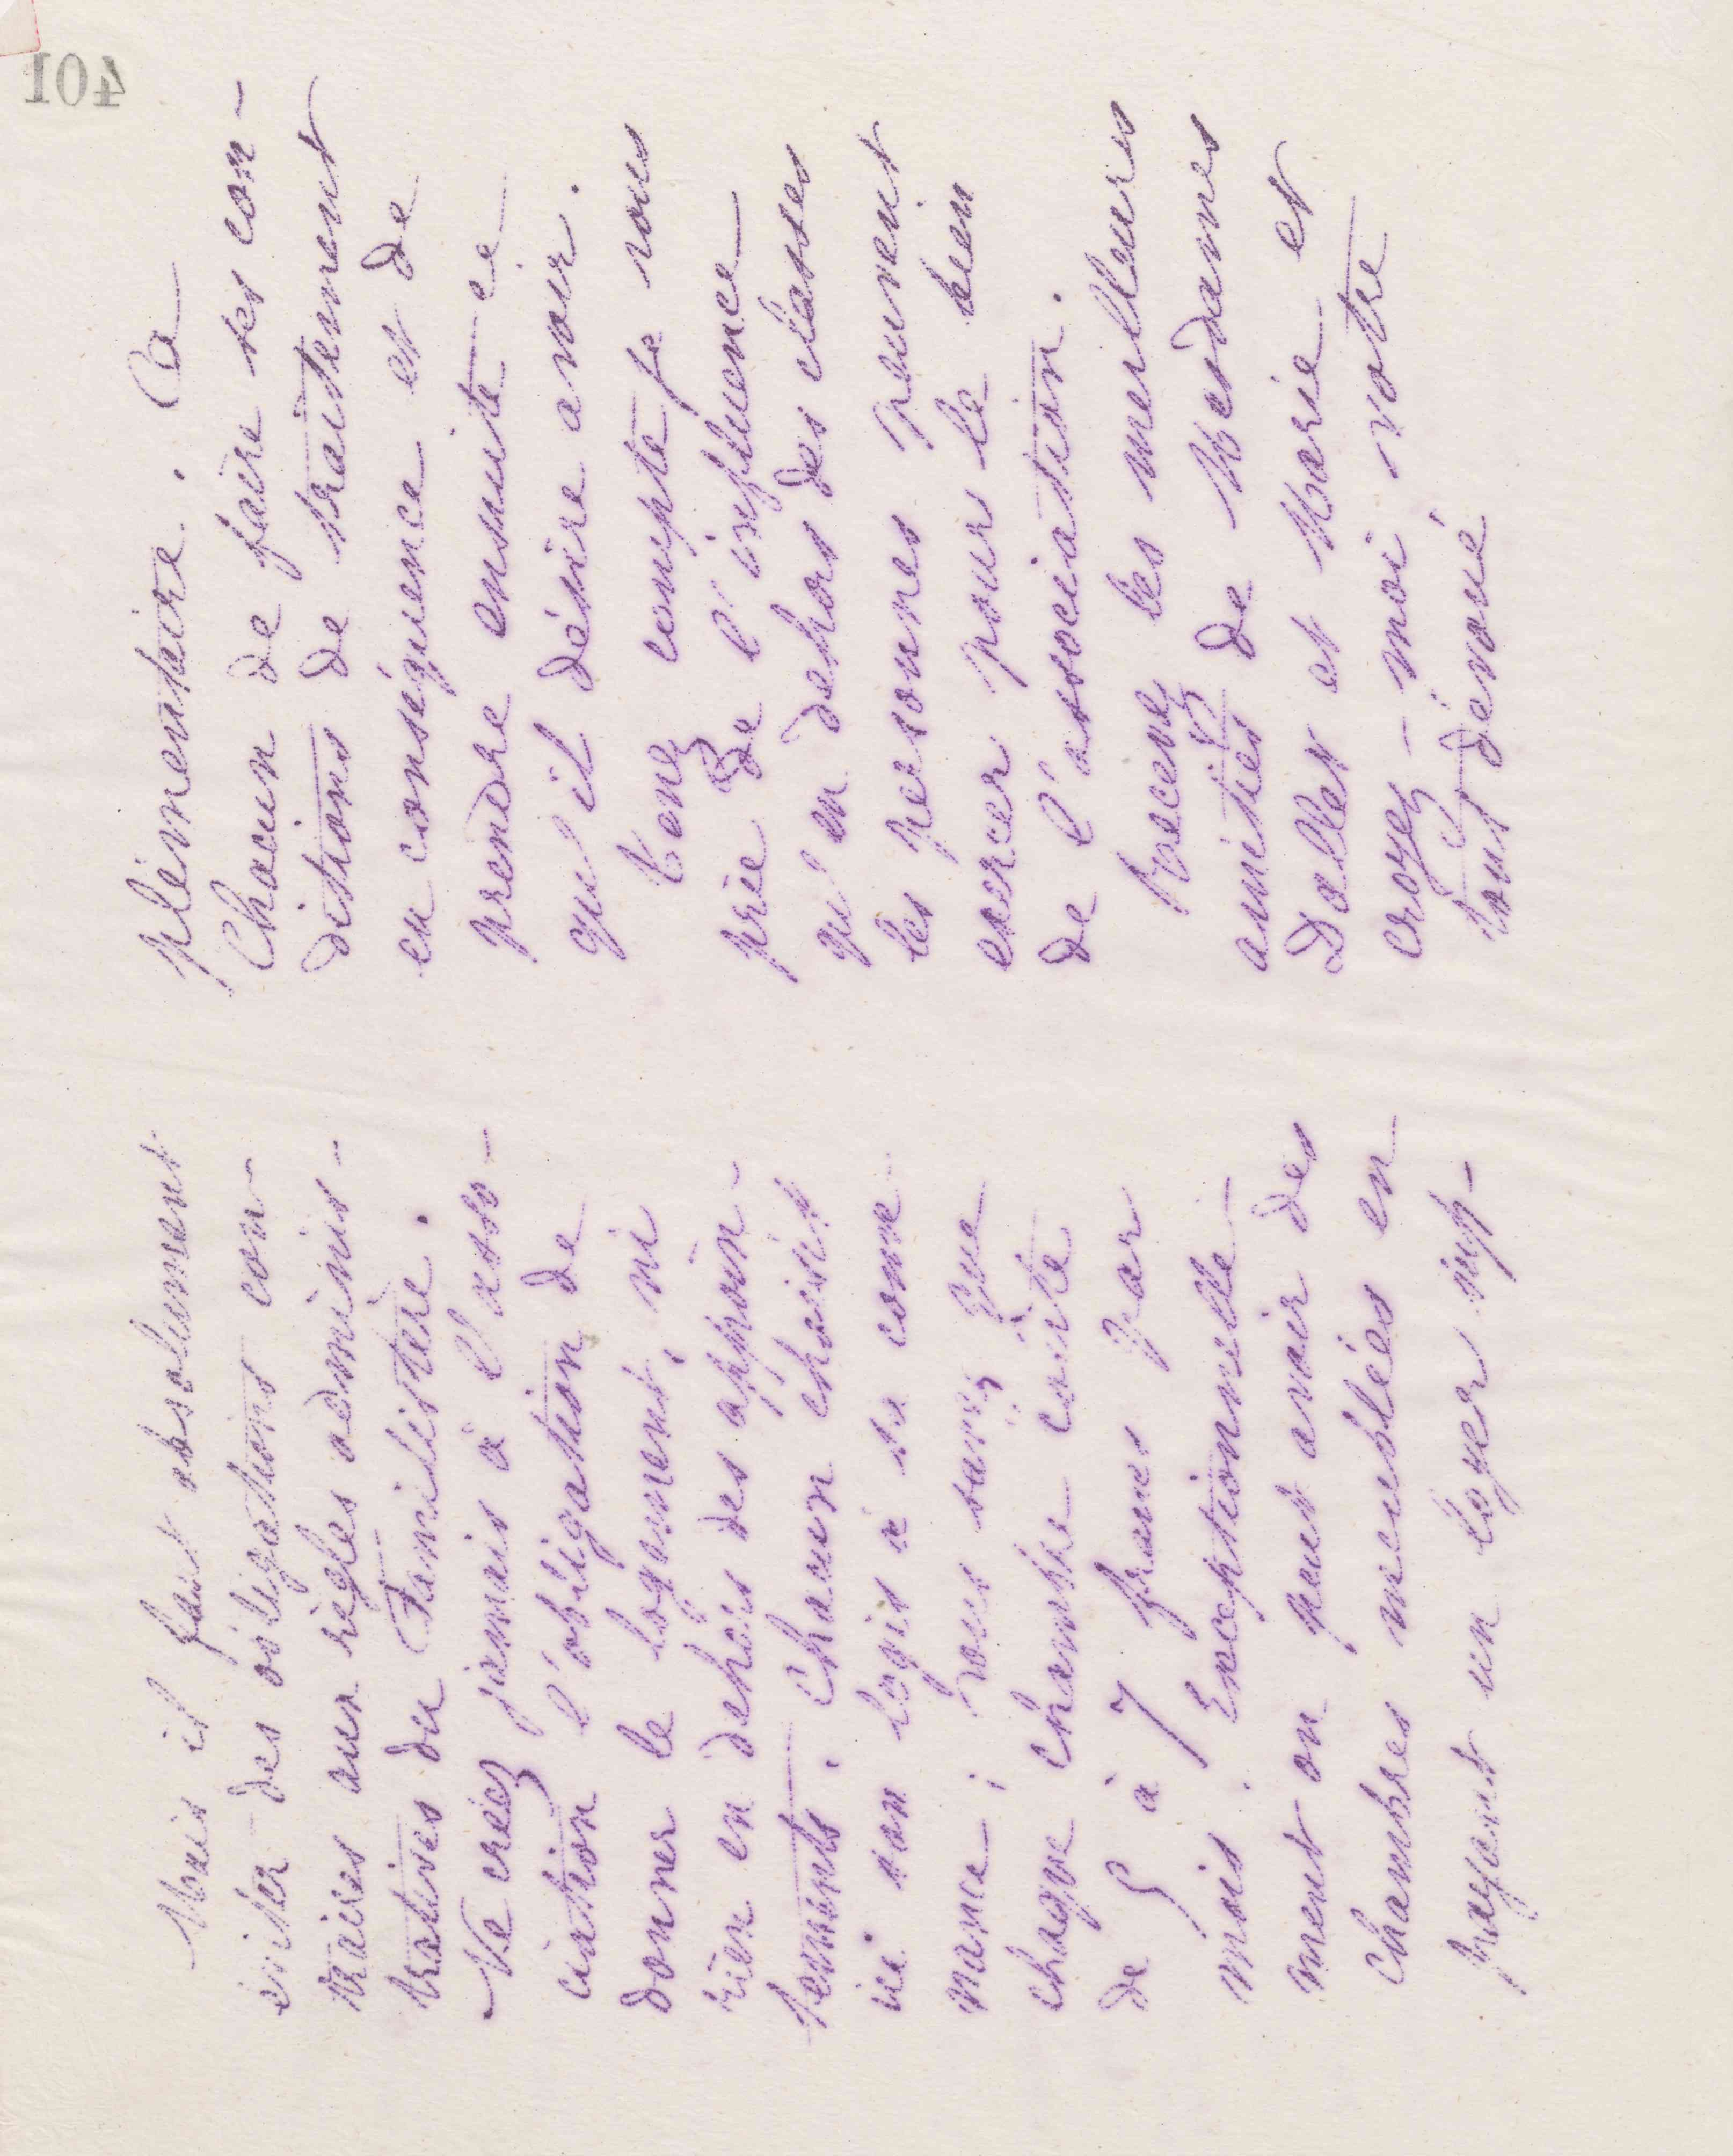 104
Mais il faut absolument
éviter des obligations con-
traires aux règles adminis-
tratives du Familistère.
Ne créez jamais à l'asso-
ciation l'obligation de
donner le logement, ni
rien en dehors des appoin-
tements. Chacun choisit
ici son logis à sa conve
nance ; vous savez que
chaque chambre coûte
de 5 à 7 francs par
mois. Exceptionnelle-
ment on peut avoir des
chambres meublées en
payant un loyer sup-
plémentaire. Ca
Chacun de faire ses con-
ditions de traitement
en conséquence et de
prendre ensuite ce
qu'il désire avoir.
Tenez compte je vous
prie de l'influence
qu'en dehors des classes
les personnes peuvent
exercer pour le bien
de l'association.
Recevez les meilleures
amitiés de Mesdames
Dallet et Marie et
croyez-moi votre
tout dévoué